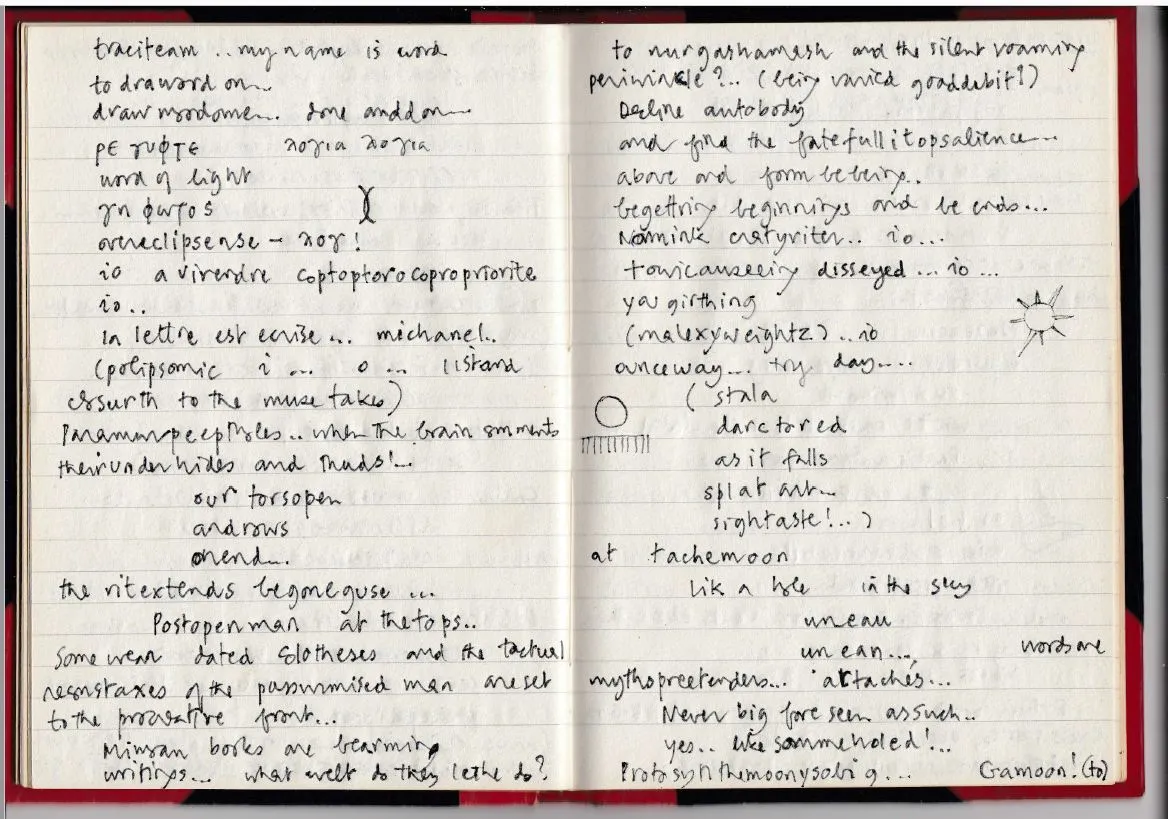 traciteam .. my name is word
to draword on...
draw moodome... done anddon...
ρε γυφτε λογια λογια
word of light
γη φωτος
overeclipsense - λογ!
io a virendre coptoptorocopropriorite
io..
la lettre est ecrise ... michanel..
(polipsomic i ... o ... listand
essurth to the muse takes)
.. when the brain omments
their underhides and thuds!...
our torsopen
androws
onend...
the ritextends begoneguse ...
Postopenman at thetops..
Some wear dated Slotheses and the tactual
of the man are set
to the provative front...
Minoan books are bearming
writings... what welt do they lethe do?
to nurgashamash and the silent roaming
periwinkle?... (being vanica gooddebit?)
Decline autobody
and find the fatefullitopsalience...
above and form bebeing..
begetting beginnings and be ends...
.. io...
disseyed ... io ...
you girthing
(malexyweightz) .. io
ounceway.... try day....
( stala
darctored
as it falls
splat art...
sightaste!.. )
at tachemoon
Lik a hole in the sky
un eau
un ean... words are
mythopreetenders... attachés...
Never big fore seen assuch..
yes.. like sommeholed!...
Protosynthemoonysobig... Gamoon! (to)